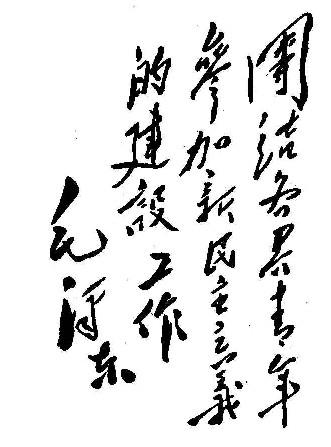 團結各界青年
參加新民主主義
的建設工作
毛泽东